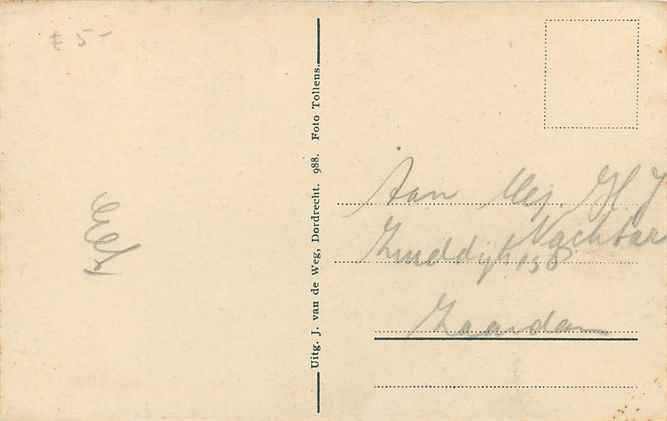 £ 5-
Uitg. J. van de Weg, Dordrecht. 988. Foto Tollens.
Aan Mej. H. J
Nachtar
Zuiddijk 138
Zaandam